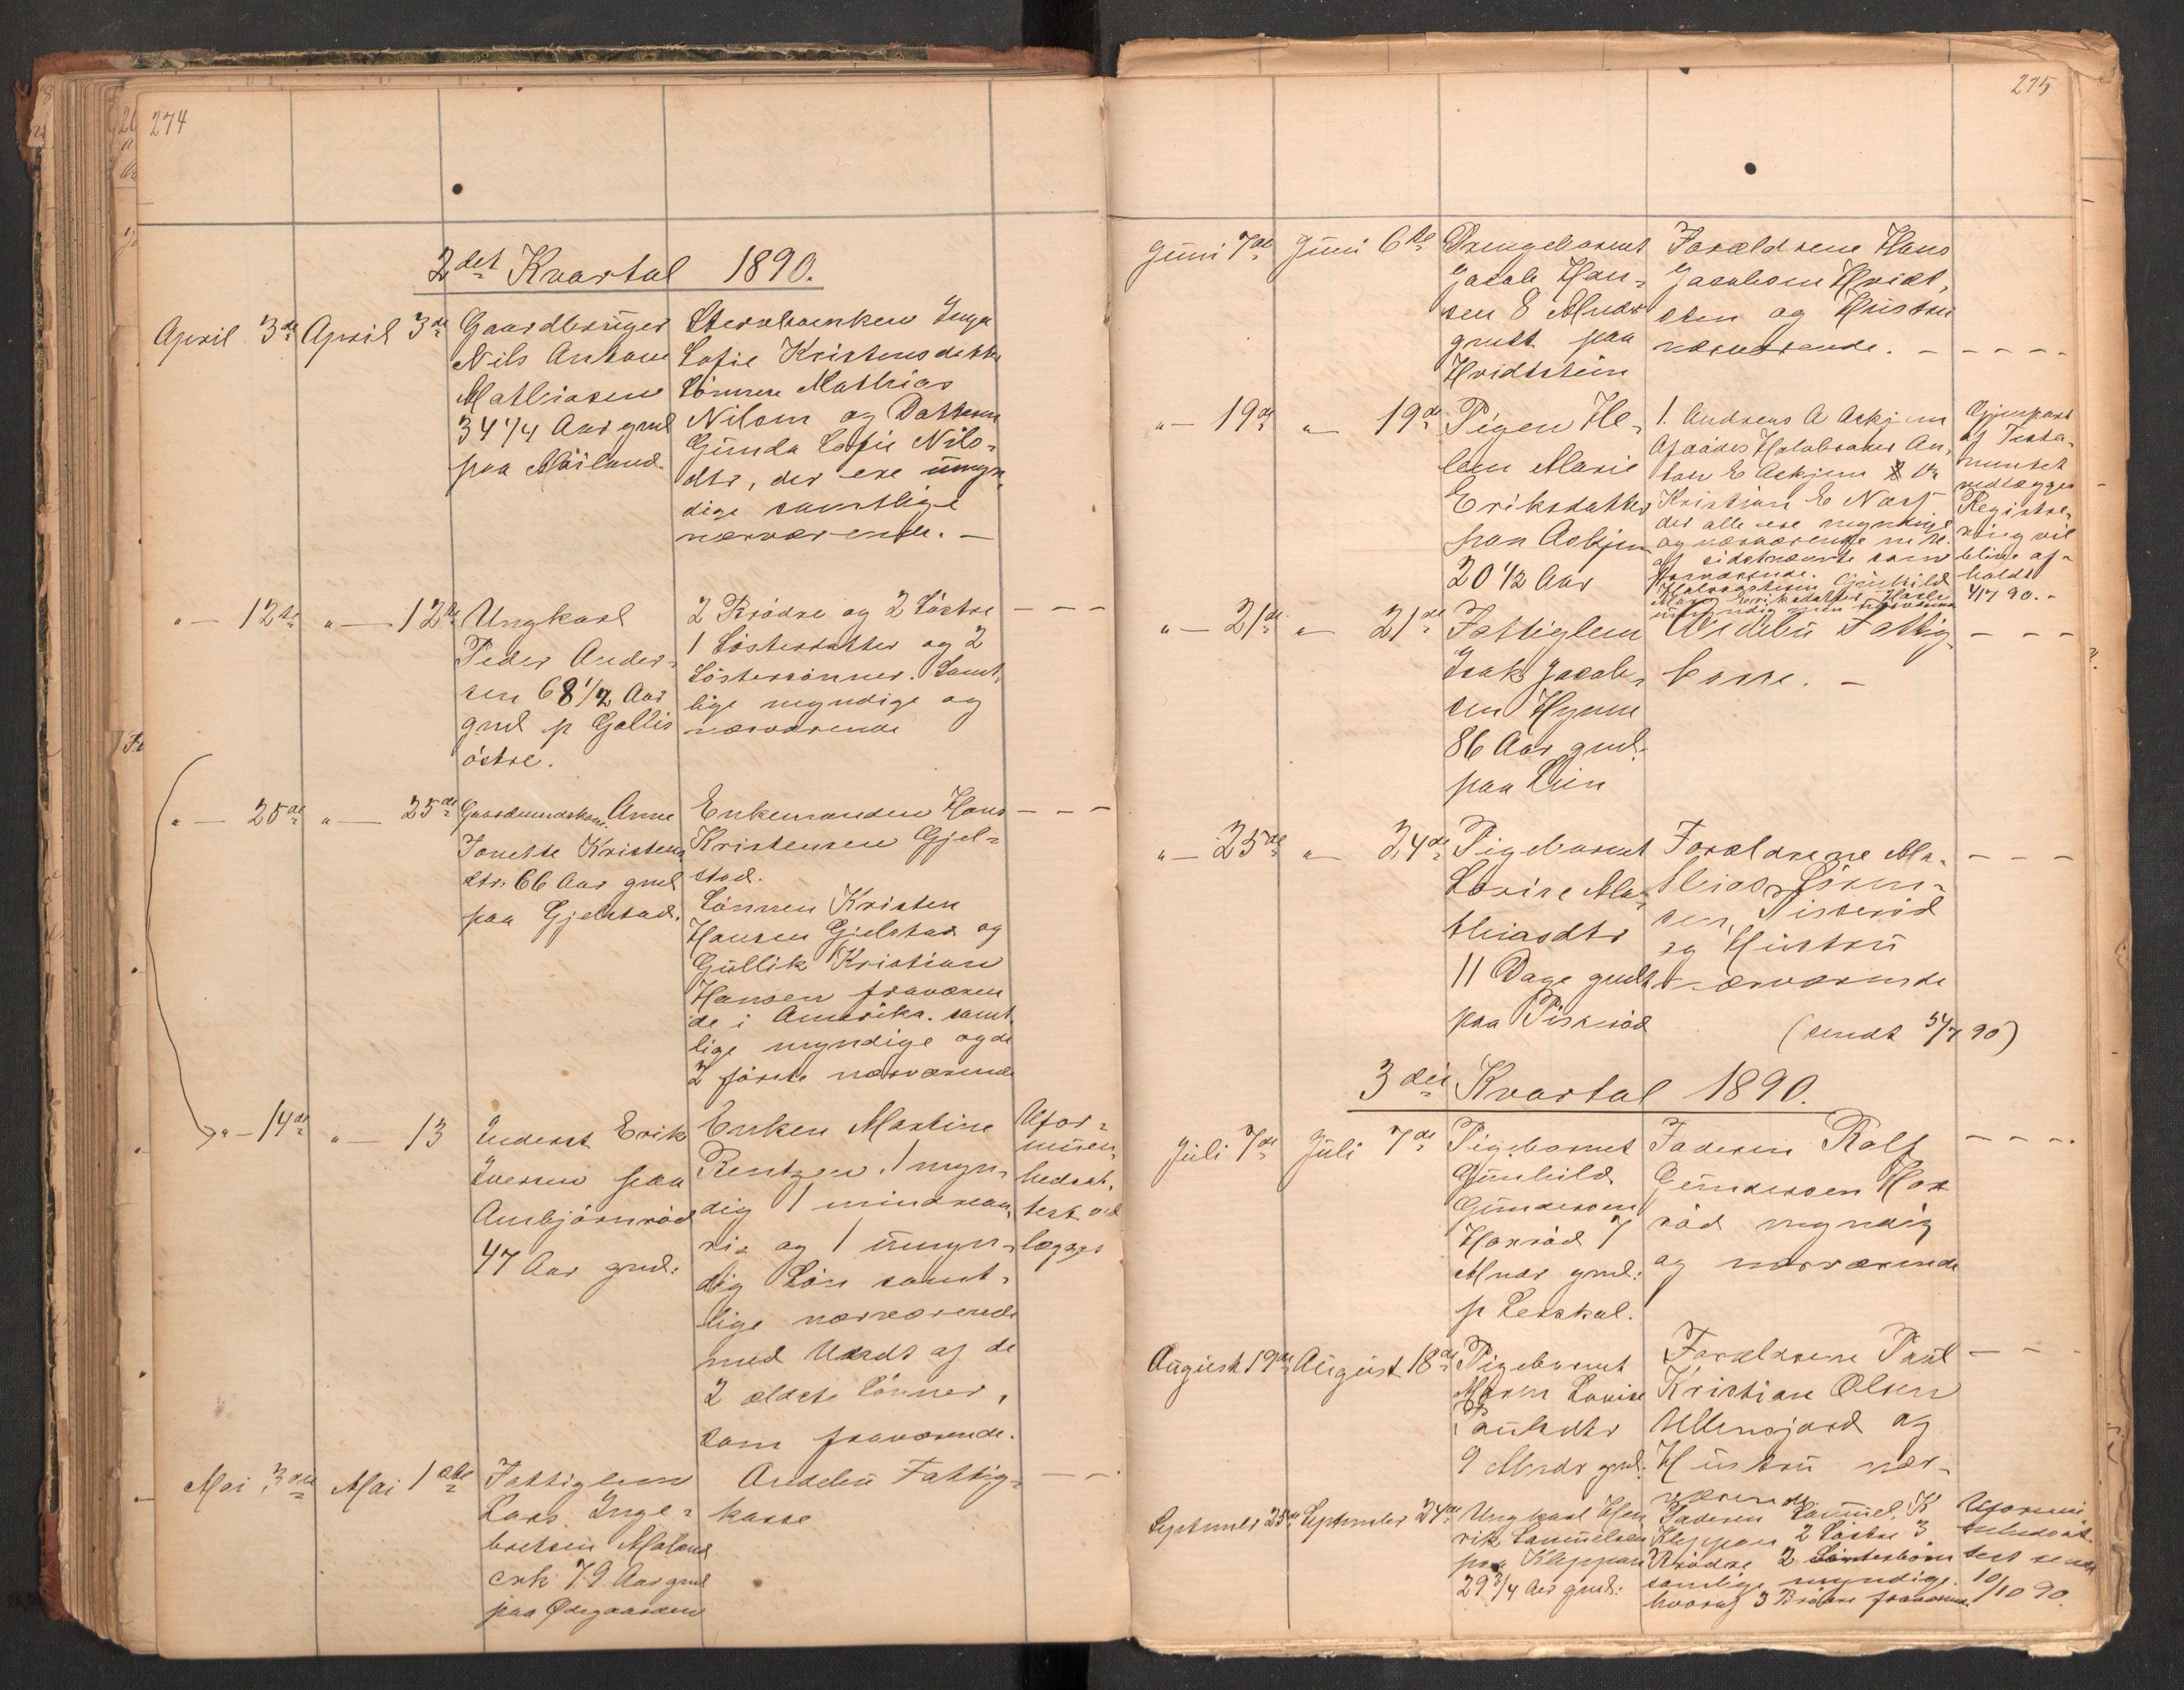 274
2det Kvartal 1890.
April 3de April 3de Gaardbruger
Nils Anton
Mathiasen
34 1/4 Aar gml
paa Møiland.
Stervboenken Inga
Sofie Kristensdatter
Sønnen Mathias
Nilsen og Datteren
Gunda Sofie Nils-
dtr, der ere umyn-
dige samtlige
nærværende. -
" - 12te " - 12te Ungkarl
Peder Ander-
sen 68 1/2 Aar
gml p Gallis
østre.
2 Brødre og 2 Søstre - - -
1 Søsterdatter og 2
Søstersønner. Samt-
lige myndige og
nærværende
" - 25de " - 25de Gaardmandskone Anne
Jonette Kristens
dtr: 66 Aar gml
paa Gjelstad.
Enkemanden Hans - - -
Kristensen Gjel-
stad.
Sønnen Kristen
Hansen Gjelstad og
Gullik Kristian
Hansen fraværen
de i Amerika. samt
lige myndige og de
2 første nærværende
" - 14de " - 13 Inderst Erik
Iversen paa
Anbjørnrød
47 Aar gml:
Enken Martine
Rentzen. 1 myn-
dig 1 mindreaa-
rig og 1 umyn-
dig Søn samt-
lige nærværende
med Undt af de
2 ældste Sønner,
som fraværende.
Ufor-
muen-
hedsat-
test ved
lægges
Mai 3die Mai 1ste Fattiglem
Lars Inge-
bretsen Moland
enk 79 Aar gml
paa Ødegaarden
Andebu Fattig- - -
kasse
275
Juni 7de Juni 6te Drengebarnet
Jacob Han-
sen 8 Mndr
gmlt paa
Hvidtstein
Forældrene Hans
Jacobsen Hvidt-
sten og Hustru
nærværende. - - - - -
" - 19de " - 19de Pigen He-
len Marie
Eriksdatter
paa Askjem
20 1/2 Aar
1. Andreas A Askjem
Afdødes Halvbroder An-
ton E Askjem
Kristian E
der alle ere myndige
og nærværende
af sidstnævnte som
fraværende.
1 Halvsøster Gunhild
Eriksdatter
Gjenpart
af Testa-
mentet
vedlægges -
Registre-
ring vil
blive af-
holdt
4/7 90. -
" - 21de " - 21de Fattiglem
Isak Jacob-
sen Hynne
86 Aar gml:
paa Lien
Andebu Fattig- - - -
kasse. -
" - 25de " - 24de Pigebarnet
Lovise Ma-
thiasdtr
11 Dage gmlt
paa Pisserød
Forældrene Ma- - - -
thias Søren-
sen, Pisserød
og Hustru
nærværende
(sendt 5/7 90)
3die Kvartal 1890.
Juli 7de Juli 7de Pigebarnet
Gunhild
Gundersen
Haxrød 7
Mndr gml:
p Lerskal.
Faderen Rolf - - -
Gundersen Hax
rød myndig
og nærværende
August 19de August 18de Pigebarnet
Maren Lovise
Paulsdtr
9 Mndr gml:
Forældrene Paul - - -
Kristian Olsen
Ullensjord og
Hustru nær-
værende
September 25de September 24de Ungkarl Hen
rik Samuelsen
paa Kleppan
29 3/4 Aar gml:
Faderen Samuel K
Kleppan 2 Søstre 3
Brødre 2 Søsterbørn
samtlige myndige.
hvoraf 3 Brødre fraværende
Uformu
enhedsat
test sendt
10/10 90.